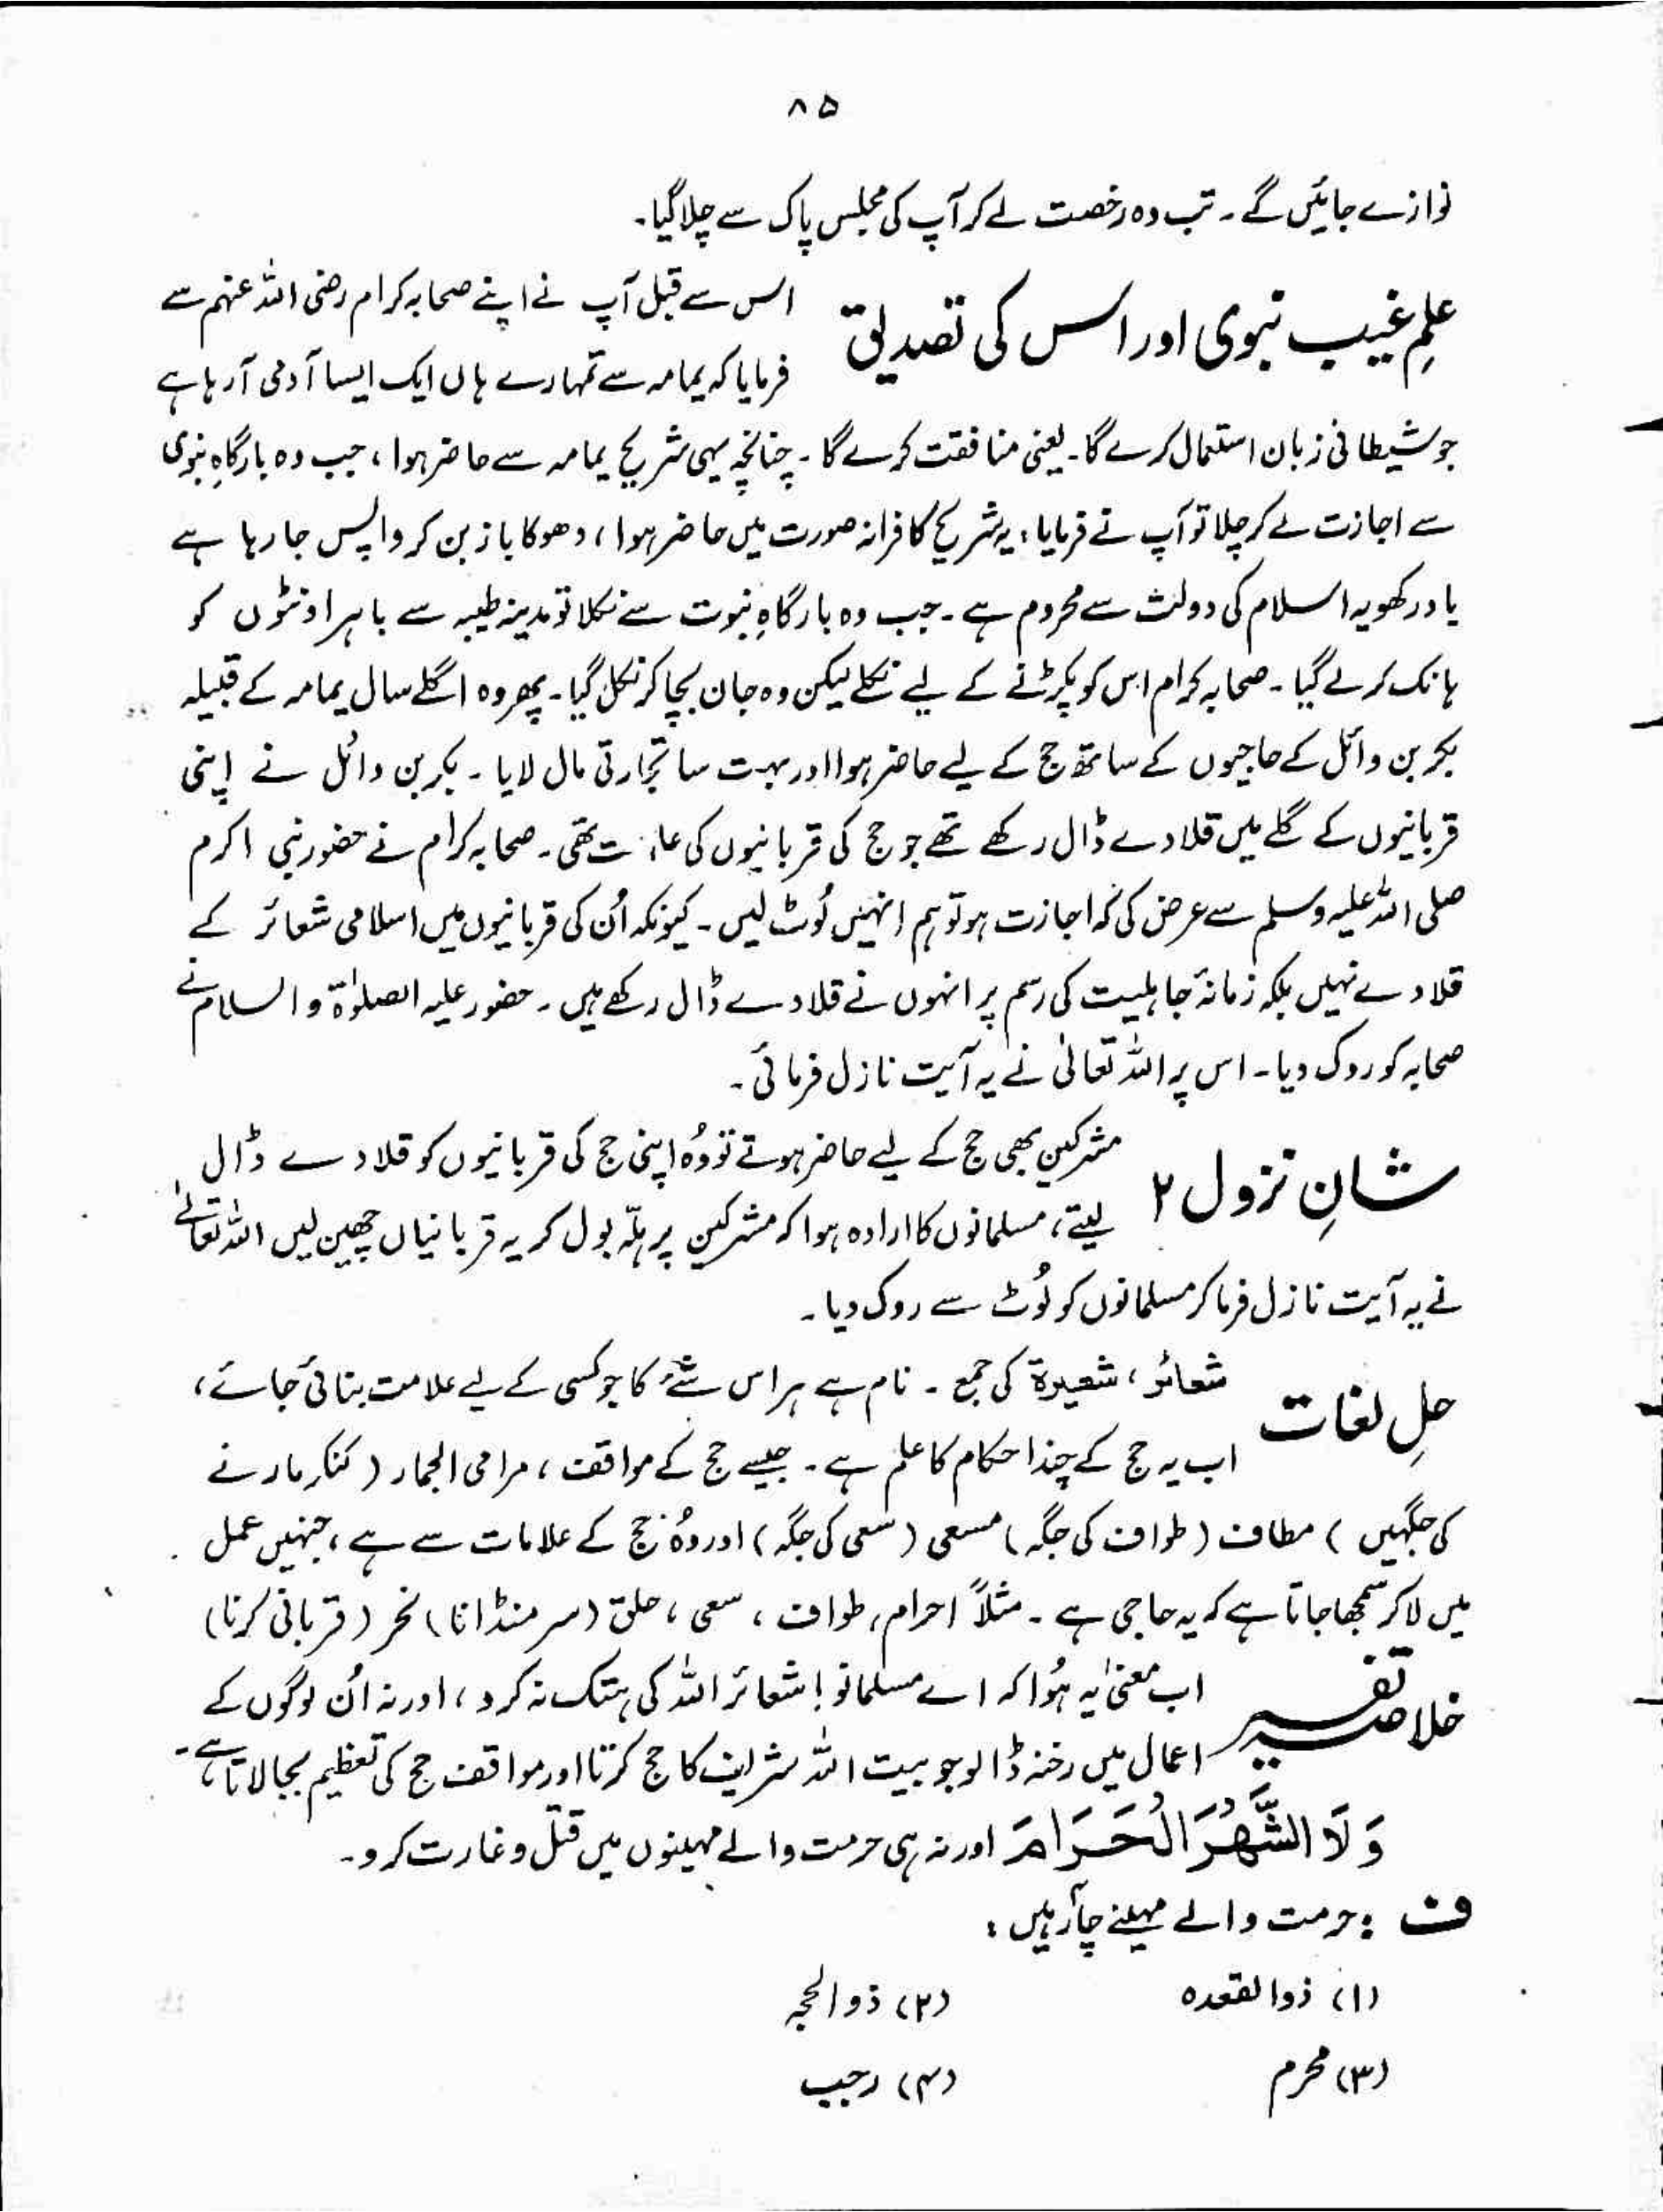 ۸۵
نوازے جائیں گے۔ تب وہ رخصت لے کر آپ کی مجلس پاک سے چلا گیا۔
علمِ غیب نبوی اور اس کی تصدیق
اس سے قبل آپ نے اپنے صحابہ کرام رضی اللہ عنہم سے
فرمایا کہ یمامہ سے تمہارے ہاں ایک ایسا آدمی آ رہا ہے
جو شیطانی زبان استعمال کرے گا۔ یعنی منافقت کرے گا۔ چنانچہ یہی شریح یمامہ سے حاضر ہوا، جب وہ بارگاہِ نبوی
سے اجازت لے کر چلا تو آپ نے فرمایا: یہ شریح کافرانہ صورت میں حاضر ہوا، دھوکا باز بن کر واپس جا رہا ہے
یاد رکھو یہ اسلام کی دولت سے محروم ہے۔ جب وہ بارگاہِ نبوت سے نکلا تو مدینہ طیبہ سے باہر اونٹوں کو
ہانک کر لے گیا۔ صحابہ کرام اس کو پکڑنے کے لیے نکلے لیکن وہ جان بچا کر نکل گیا۔ پھر وہ اگلے سال یمامہ کے قبیلہ
بکر بن وائل کے حاجیوں کے ساتھ حج کے لیے حاضر ہوا اور بہت سا تجارتی مال لایا۔ بکر بن وائل نے اپنی
قربانیوں کے گلے میں قلادے ڈال رکھے تھے جو حج کی قربانیوں کی تھی۔ صحابہ کرام نے حضور نبی اکرم
صلی اللہ علیہ وسلم سے عرض کی کہ اجازت ہو تو ہم انہیں لُوٹ لیں۔ کیونکہ اُن کی قربانیوں میں اسلامی شعائر کے
قلادے نہیں بلکہ زمانۂ جاہلیت کی رسم پر انہوں نے قلادے ڈال رکھے ہیں۔ حضور علیہ الصلوٰۃ والسلام نے
صحابہ کو روک دیا۔ اس پر اللہ تعالیٰ نے یہ آیت نازل فرمائی۔
شانِ نزول ۲
مشرکین بھی حج کے لیے حاضر ہوتے تو وُہ اپنی حج کی قربانیوں کو قلادے ڈال
لیتے، مسلمانوں کا ارادہ ہوا کہ مشرکین پر ہلّہ بول کر یہ قربانیاں چھین لیں اللہ تعالےٰ
نے یہ آیت نازل فرما کر مسلمانوں کو لُوٹ سے روک دیا۔
حلِ لغات
شعائر، شعیرۃ کی جمع۔ نام ہے ہر اس شئے کا جو کسی کے لیے علامت بنائی جائے،
اب یہ حج کے چند احکام کا علم ہے۔ جیسے حج کے مواقف، مرامی الجمار (کنکر مارنے
کی جگہیں) مطاف (طواف کی جگہ) مسعی (سعی کی جگہ) اور وُہ حج کے علامات سے ہے، جنہیں عمل
میں لا کر سمجھا جاتا ہے کہ یہ حاجی ہے۔ مثلاً احرام، طواف، سعی، حلق (سر منڈانا) نحر (قربانی کرنا)
خلاصہ تفسیر
اب معنیٰ یہ ہُوا کہ اے مسلمانو! شعائر اللہ کی ہتک نہ کرو، اور نہ اُن لوگوں کے
اعمال میں رخنہ ڈالو جو بیت اللہ شریف کا حج کرتا اور مواقف حج کی تعظیم بجا لاتا ہے۔
وَلَا الشَّهْرَ الْحَرَامَ اور نہ ہی حرمت والے مہینوں میں قتل و غارت کرو۔
ف : حرمت والے مہینے چار ہیں :
(۱) ذوالقعدہ (۲) ذوالحجہ
(۳) محرم (۴) رجب